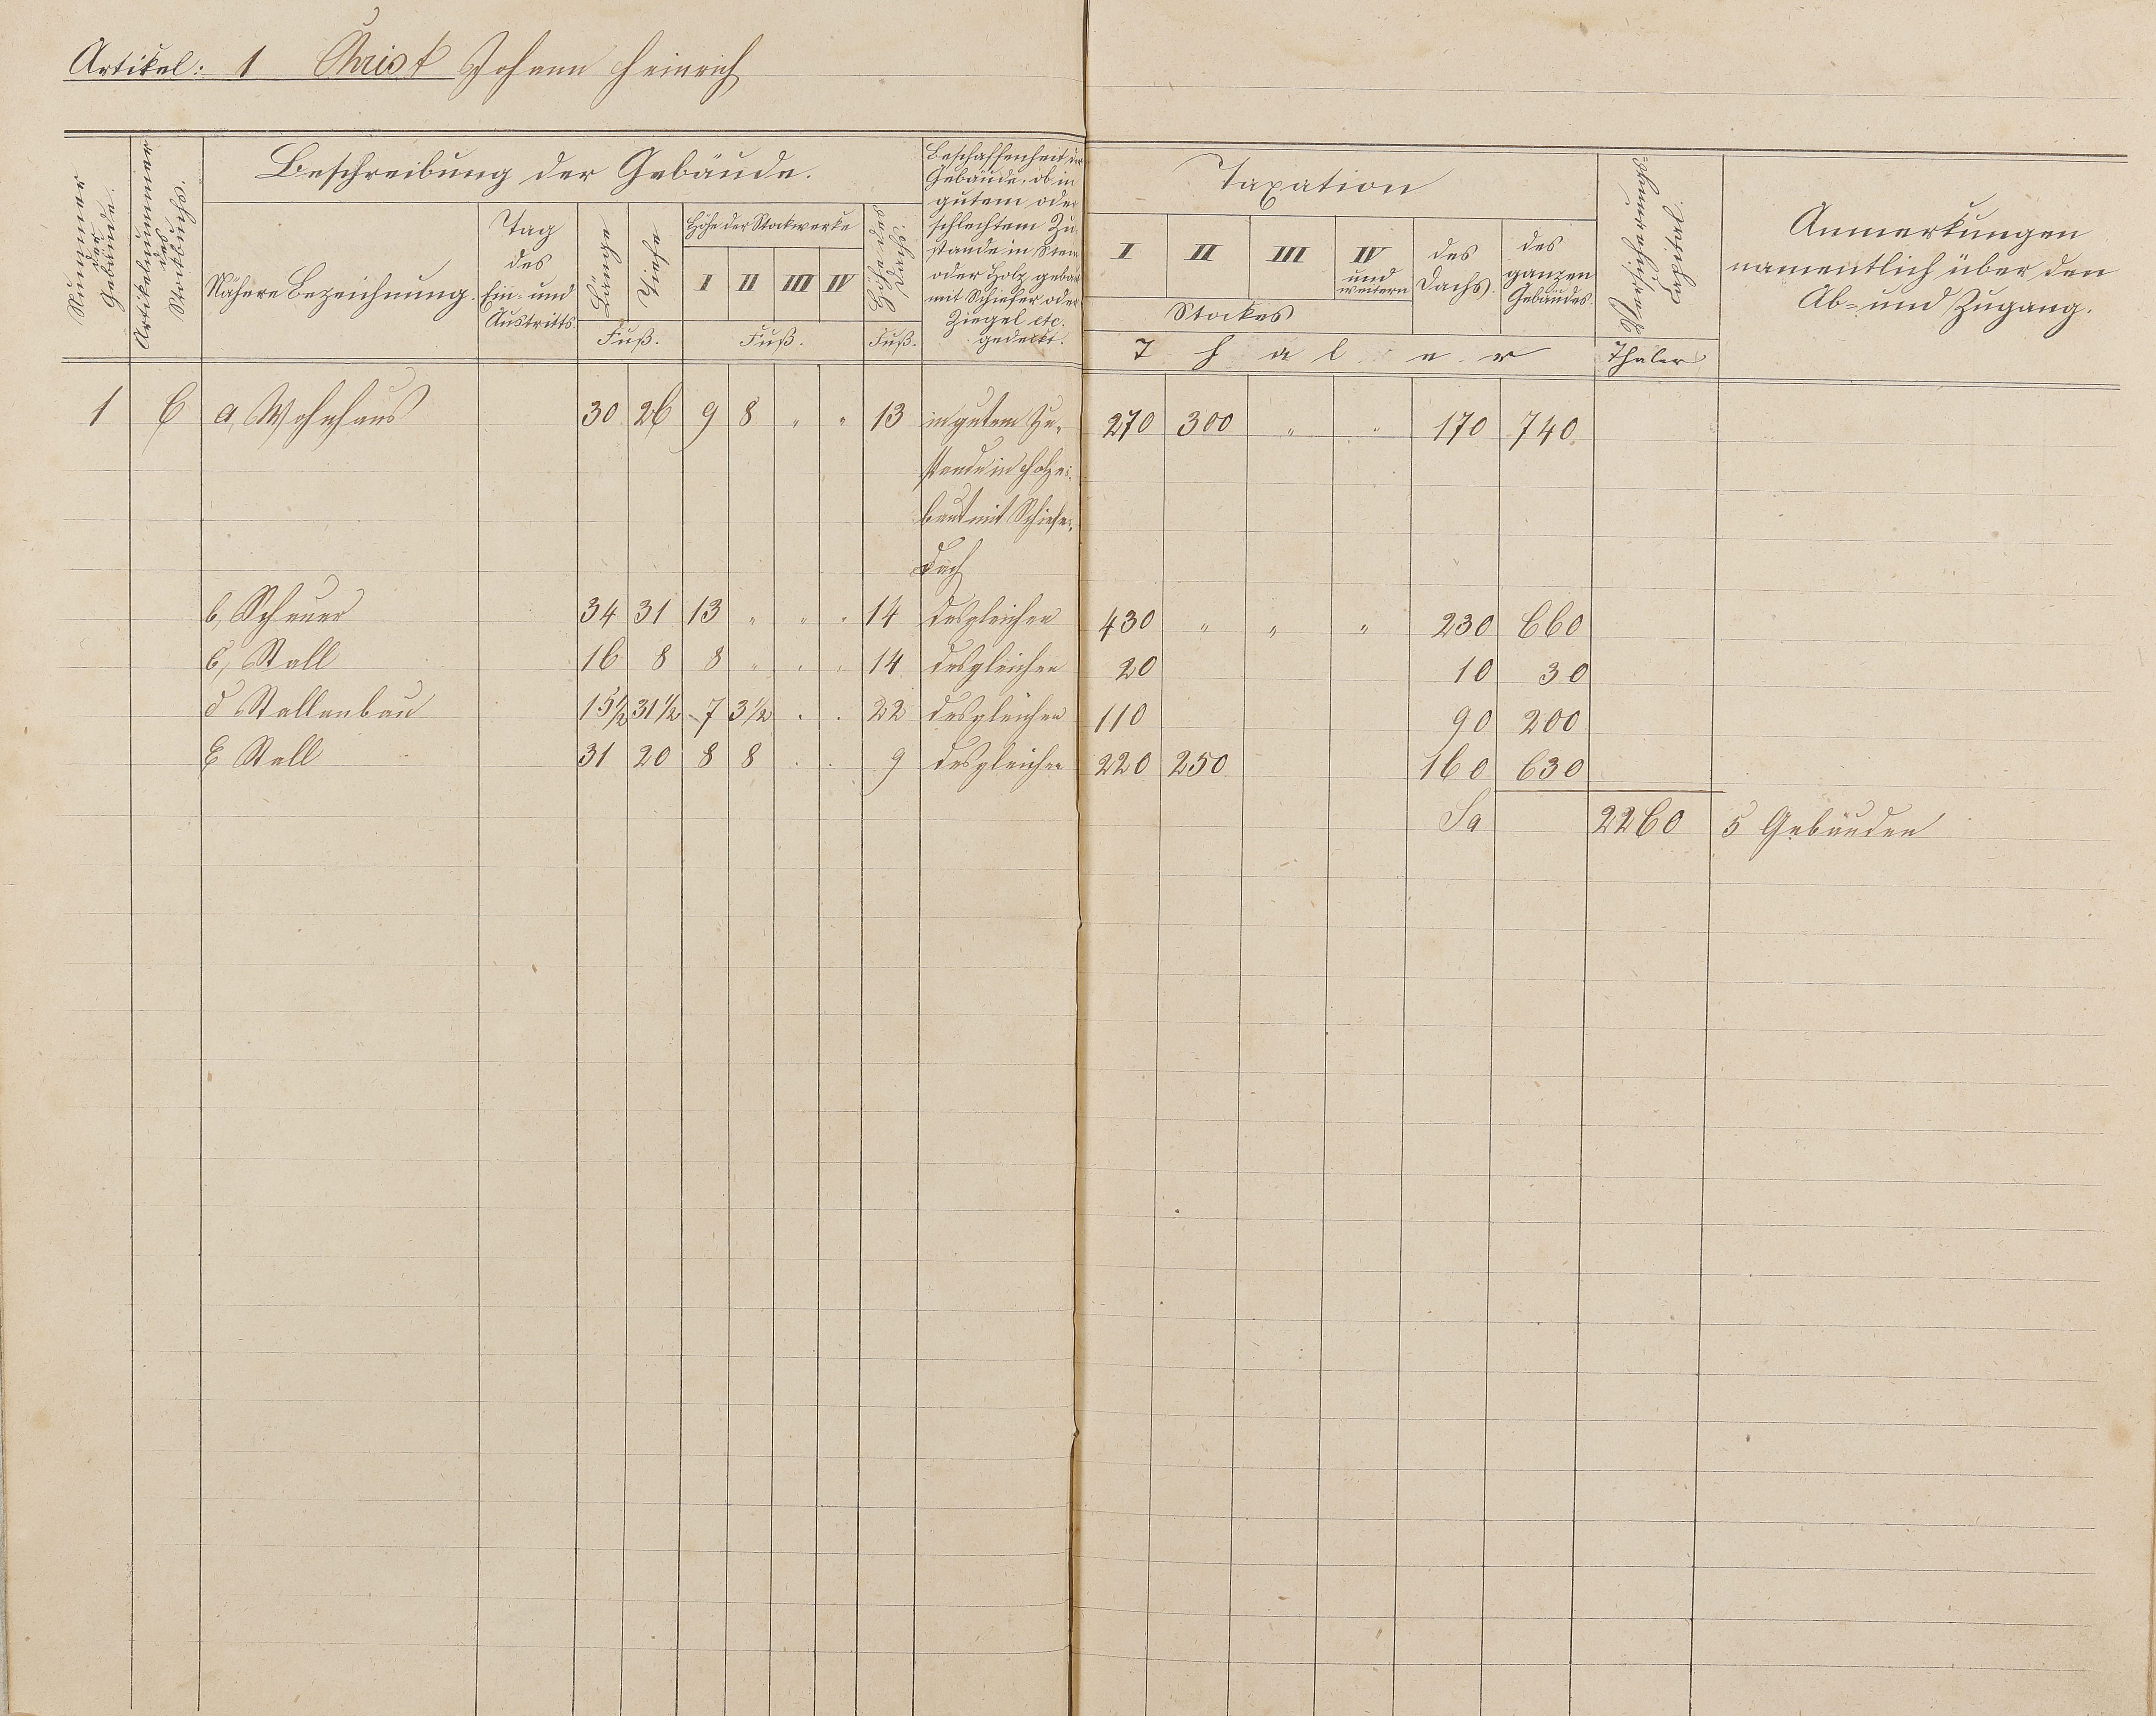 Artikel: 1 Christ Johann Heinrich
Nummer der Gebäude.
Artikelnummer des Stockbuchs.
Beschreibung der Gebäude.
Nähere Bezeichnung.
Tag des Ein- und Austritts.
Länge
Tiefe
Fuß.
Höhe der Stockwerke
I II III IV
Fuß.
Höhe des Dachs.
Fuß.
Beschaffenheit der
Gebäude, ob in
gutem oder
schlechtem Zu-
stande in Stein
oder Holz gebaut
mit Schiefer oder
Ziegel etc.
gedeckt.
Taxation
I II III IV und weitern
Stockes
des Dachs.
des ganzen Gebäudes.
Thaler
Thaler
Anmerkungen
namentlich über den
Ab- und Zugang.
1 6 a, Wohnhaus 30 26 9 8 " " 13 in gutem Zu- 270 300 " " 170 740
stande in Holz er-
baut mit Schiefer-
dach
b, Scheuer 34 31 13 " " " 14 desgleichen 430 " " " 230 660
c, Stall 16 8 8 " " " 14 desgleichen 20 10 30
d Stallenbau 15 1/2 31 1/2 7 3 1/2 " " 22 desgleichen 110 90 200
e Stall 31 20 8 8 " " 9 desgleichen 220 250 160 630
Sa 2260 5 Gebäuden